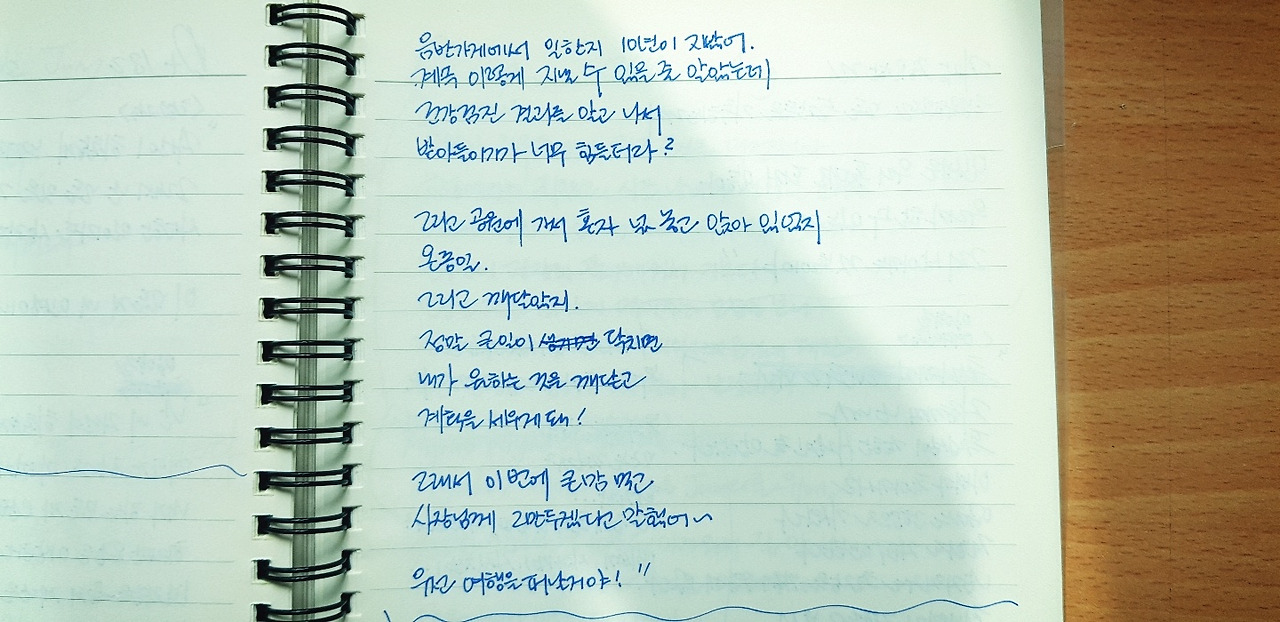 음반가게에서 일한지 10년이 지났어.
계속 이렇게 지낼 수 있을 줄 알았는데
건강검진 결과를 알고 나서
받아들이기가 너무 힘들더라?
그리고 공원에 가서 혼자 넋 놓고 앉아 있었지
온종일.
그리고 깨달았지.
정말 큰일이 생기면 닥치면
내가 원하는 것을 깨닫고
계획을 세우게 돼!
그래서 이번에 큰맘 먹고
사장님께 그만두겠다고 말했어~
우선 여행을 떠날거야! "